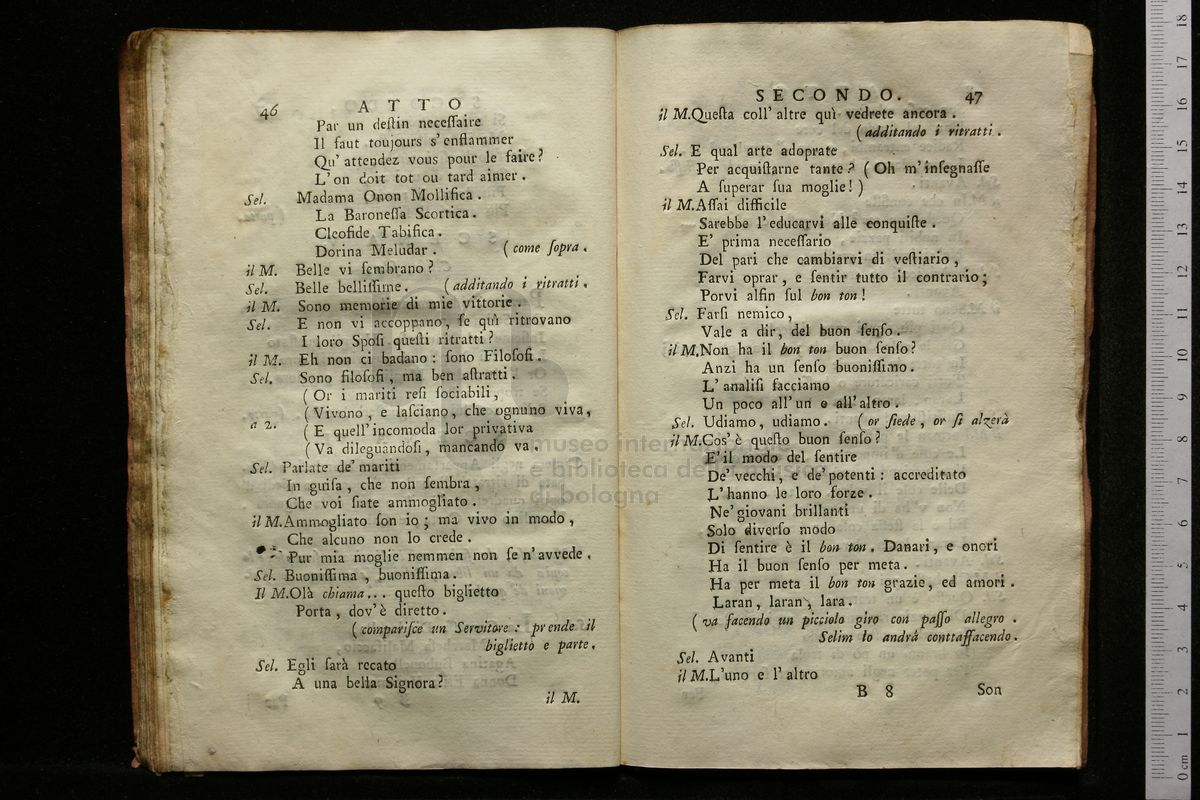 46 ATTO
Par un deſtin neceſſaire
Il faut toujours s'enflammer
Qu'attendez vous pour le faire?
L'on doit tot ou tard aimer.
Sel. Madama Onon Mollifica.
La Baroneſſa Scortica.
Cleofide Tabifica.
Dorina Meludar. (come ſopra.
il M. Belle vi ſembrano?
Sel. Belle belliſſime. (additando i ritratti.
il M. Sono memorie di mie vittorie.
Sel. E non vi accoppano, ſe quì ritrovano
I loro Spoſi queſti ritratti?
il M. Eh non ci badano: ſono Filoſofi.
Sel. Sono filoſofi, ma ben aſtratti.
(Or i mariti reſi ſociabili,
(Vivono, e laſciano, che ognuno viva,
a 2. (E quell'incomoda lor privativa
(Va dileguandoſi, mancando va.
Sel. Parlate de' mariti
In guiſa, che non ſembra,
Che voi ſiate ammogliato.
il M. Ammogliato ſon io; ma vivo in modo,
Che alcuno non lo crede.
Pur mia moglie nemmen non ſe n'avvede.
Sel. Buoniſſima, buoniſſima.
Il M. Olà chiama... queſto biglietto
Porta, dov'è diretto.
(compariſce un Servitore: prende il
biglietto e parte.
Sel. Egli ſarà recato
A una bella Signora?
il M.
SECONDO. 47
il M. Queſta coll'altre quì vedrete ancora.
(additando i ritratti.
Sel. E qual arte adoprate
Per acquiſtarne tante? (Oh m'inſegnaſſe
A ſuperar ſua moglie!)
il M. Aſſai difficile
Sarebbe l'educarvi alle conquiſte.
E' prima neceſſario
Del pari che cambiarvi di veſtiario,
Farvi oprar, e ſentir tutto il contrario;
Porvi alfin ſul bon ton!
Sel. Farſi nemico,
Vale a dir, del buon ſenſo.
il M. Non ha il bon ton buon ſenſo?
Anzi ha un ſenſo buoniſſimo.
L'analiſi facciamo
Un poco all'un e all'altro.
Sel. Udiamo, udiamo. (or ſiede, or ſi alzerà
il M. Cos'è queſto buon ſenſo?
E' il modo del ſentire
De' vecchi, e de' potenti: accreditato
L'hanno le loro forze.
Ne' giovani brillanti
Solo diverſo modo
Di ſentire è il bon ton. Danari, e onori
Ha il buon ſenſo per meta.
Ha per meta il bon ton grazie, ed amori.
Laran, laran, lara.
(va facendo un picciolo giro con paſſo allegro.
Selim lo andrà conttaffacendo.
Sel. Avanti
il M. L'uno e l'altro
B 8 Son
museo internazionale
e biblioteca della musica
di bologna
0 cm 1 2 3 4 5 6 7 8 9 10 11 12 13 14 15 16 17 18